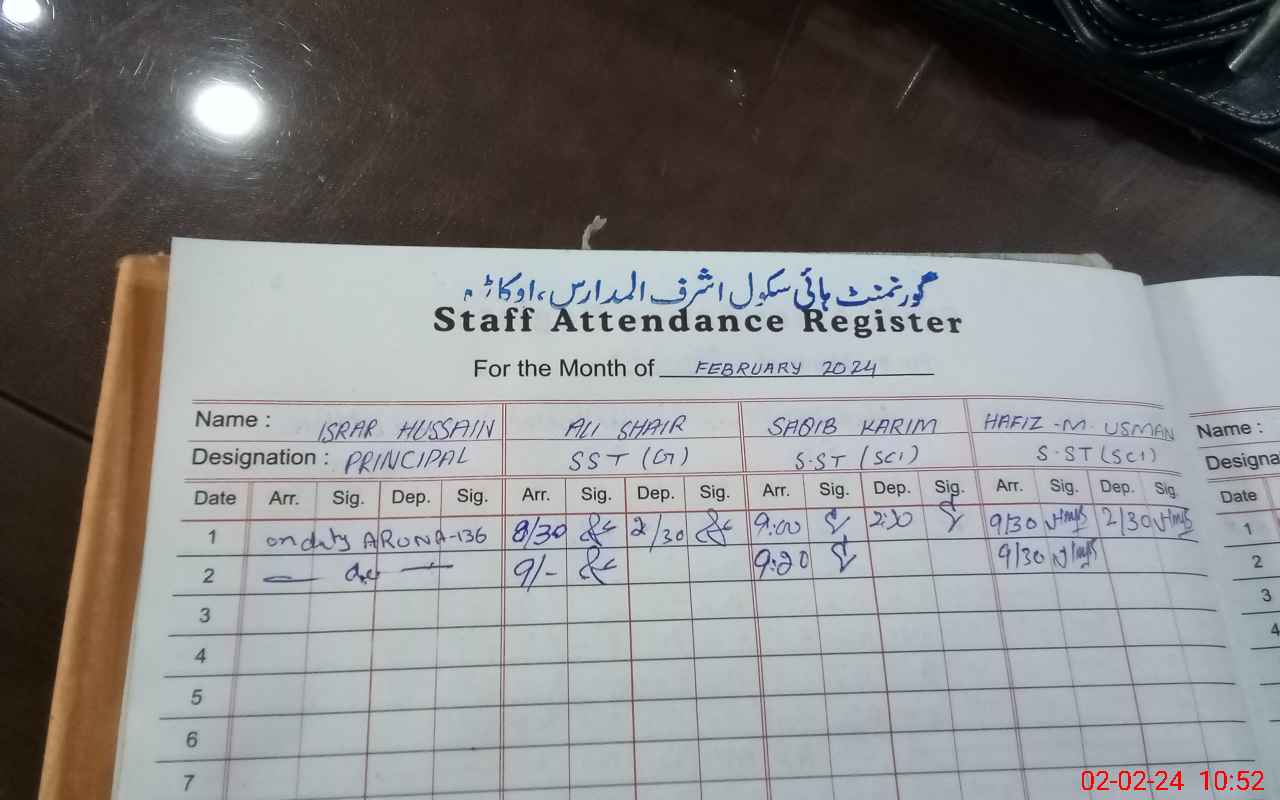 گورنمنٹ ہائی سکول اشرف المدارس، اوکاڑہ
Staff Attendance Register
For the Month of FEBRUARY 2024
Name : ISRAR HUSSAIN ALI SHAIR SAQIB KARIM HAFIZ -M. USMAN Name :
Designation : PRINCIPAL SST (G) S.ST (SCI) S.ST (SCI) Designa
Date Arr. Sig. Dep. Sig. Arr. Sig. Dep. Sig. Arr. Sig. Dep. Sig. Arr. Sig. Dep. Sig. Date
1 on duty 8/30 2/30 9:00 2:30 9/30 2/30 1
2 — do — 9/- 9:20 9/30 2
3 3
4 4
5
6
7
02-02-24 10:52